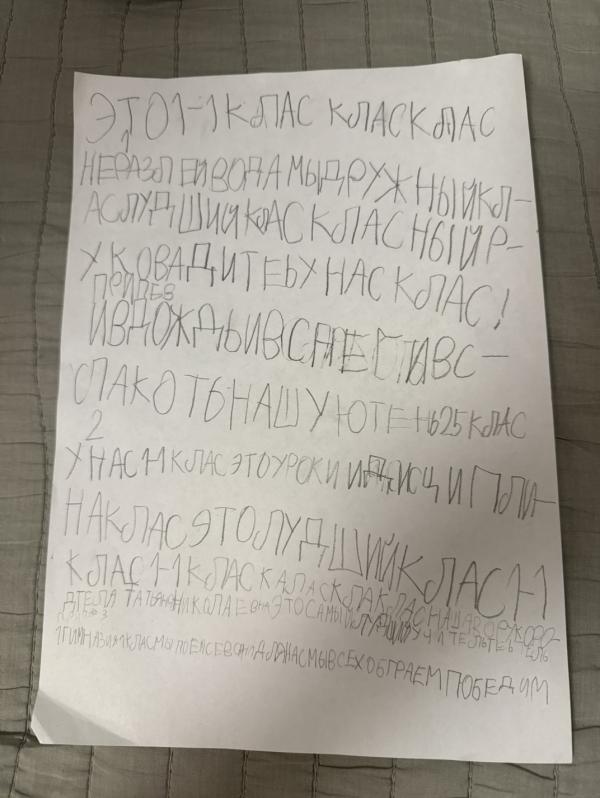 ЭТО 1-1 КЛАС КЛАС КЛАС
1
НЕРАЗЛЕЙ ВОДА МЫ ДРУЖНЫЙ КЛ-
АС ЛУДШИЙ КЛАС КЛАСНЫЙ Р-
УКОВАДИТЕЬ У НАС КЛАС!
ПРИПЕВ
И В ДОЖДЬ И В СНЕГ И В С-
ЛАКОТЬ НАШУ Ю ТЕНЬ 25 КЛАС
2
У НАС 1-1 КЛАС ЭТО УРОКИ И ДИСЦИПЛИ-
НА КЛАС ЭТО ЛУДШИЙ КЛАС 1-1
КЛАС 1-1 КЛАС КАЛАС КЛАКЛАС НАША
ТАТЬЯНА НИКОЛАЕВНА ЭТО САМЫЙ УЧИТЕЛЬ
3
1 ГИМНАЗИЯ 1 КЛАС МЫ МЫ ВСЕХ ОБГРАЕМ ПОБЕДИМ